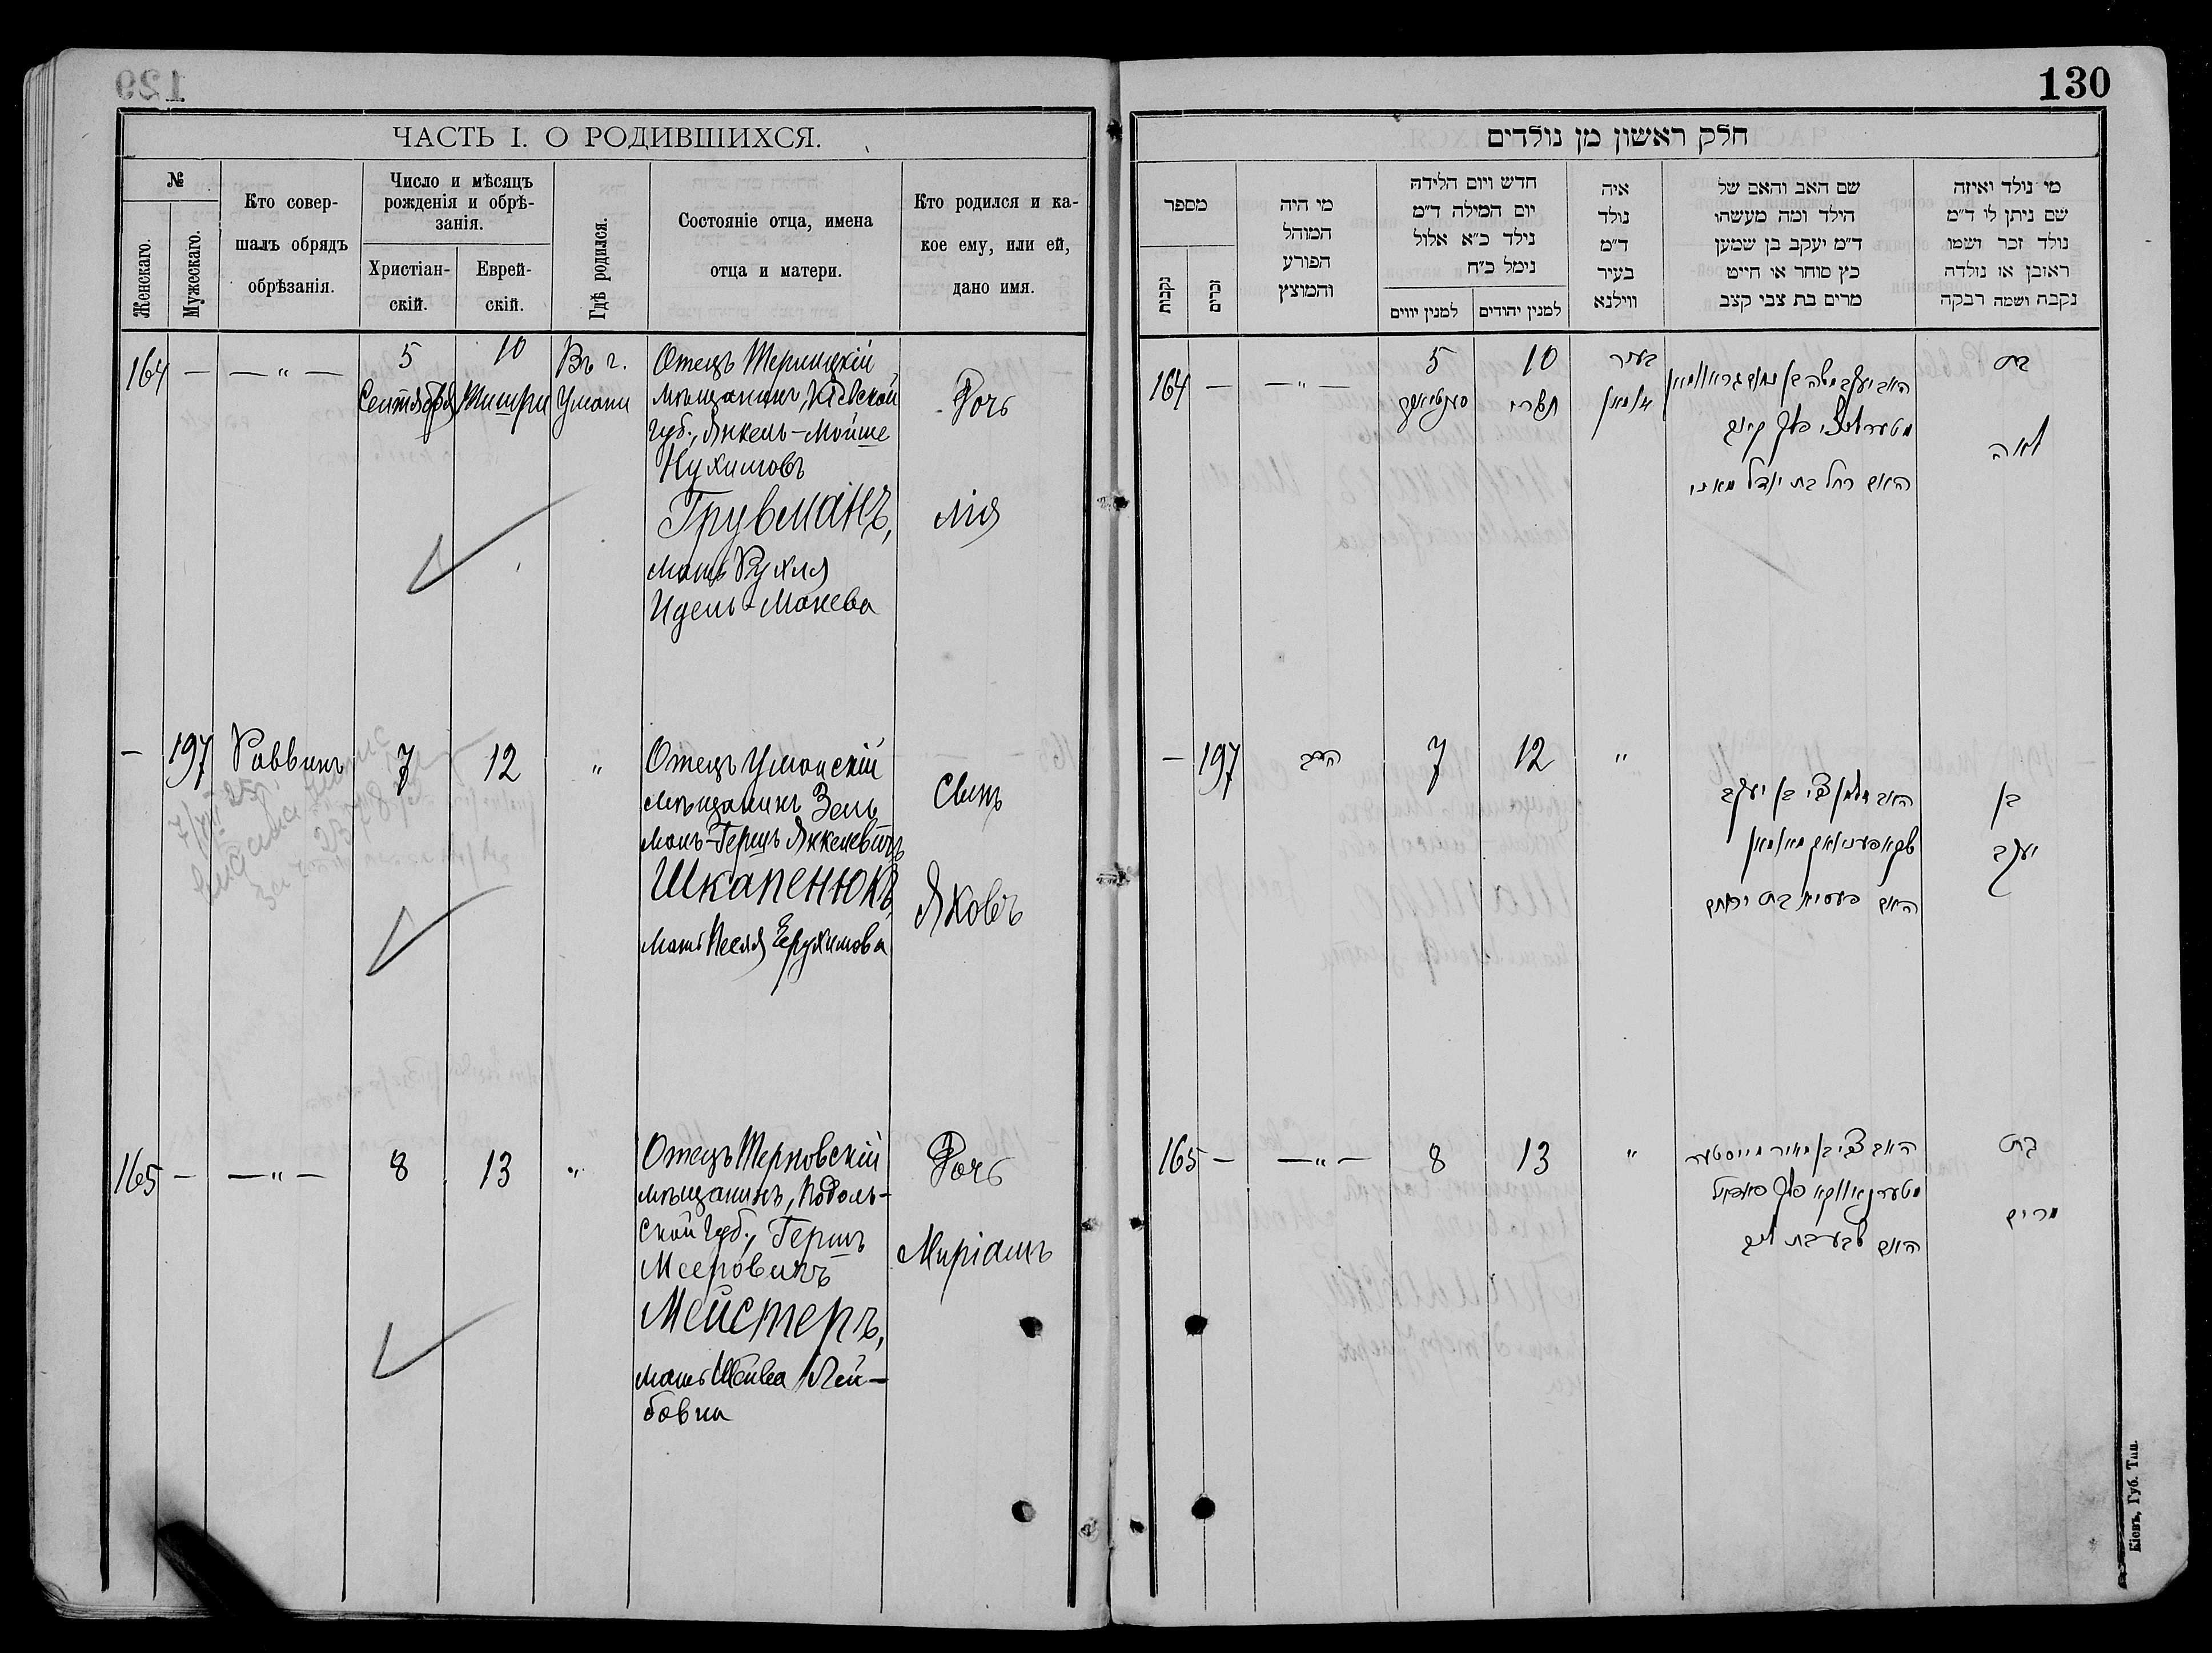 129
ЧАСТЬ I. О РОДИВШИХСЯ.
№
Женскаго.
Мужескаго.
Кто совер-
шалъ обрядъ
обрѣзанія.
Число и мѣсяцъ
рожденія и обрѣ-
занія.
Христіан-
скій.
Еврей-
скій.
Гдѣ родился.
Состояніе отца, имена
отца и матери.
Кто родился и ка-
кое ему, или ей,
дано имя.
164 — — " —
5
Сентября
10
Тишри
Въ г.
Умани
Отецъ
мѣщанинъ, Кіевской
губ., Янкель-Мойше
Нухимовъ
Грувманъ,
мать Рухля
Идель-Мокева
Дочь
Лія
— 197 Раввинъ 7 12 "
Отецъ Уманскій
мѣщанинъ Зель
манъ-Гершъ Янкелевичъ
Шкапенюкъ,
мать Песся Ерухимова
Сынъ
Яковъ
165 — — " — 8 13 "
Отецъ Терновскій
мѣщанинъ, Подоль-
ской губ., Гершъ
Мееровичъ
Мейстеръ,
мать Шейва Лей-
бовна
Дочь
Миріамъ
130
חלק ראשון מן נולדים
מספר
נקבות
זכרים
מי היה
המוהל
הפורע
והמוצץ
חדש ויום הלידה
יום המילה ד״מ
נילד כ״א אלול
נימל כ״ח
למנין יווים
למנין יהודים
איה
נולד
ד״מ
בעיר
ווילנא
שם האב והאם של
הילד ומה מעשהו
ד״מ יעקב בן שמען
כץ סוחר או חייט
מרים בת צבי קצב
מי נולד ואיזה
שם ניתן לי ד״מ
נולד זכר ושמו
ראובן או נולדה
נקבה ושמה רבקה
164 — — " —
5
10
תשרי
בעיר
אומאן
האב יעקב משה בן נחום
האם רחל בת יודל
בת
לאה
— 197 הרב 7 12 "
האב זלמן צבי בן יעקב
האם פעסיא בת ירוחם
בן
יעקב
165 — — " — 8 13 "
האב צבי בן מאיר מייסטער
האם שבע בת ליב
בת
מרים
Кіевъ, Губ. Тип.